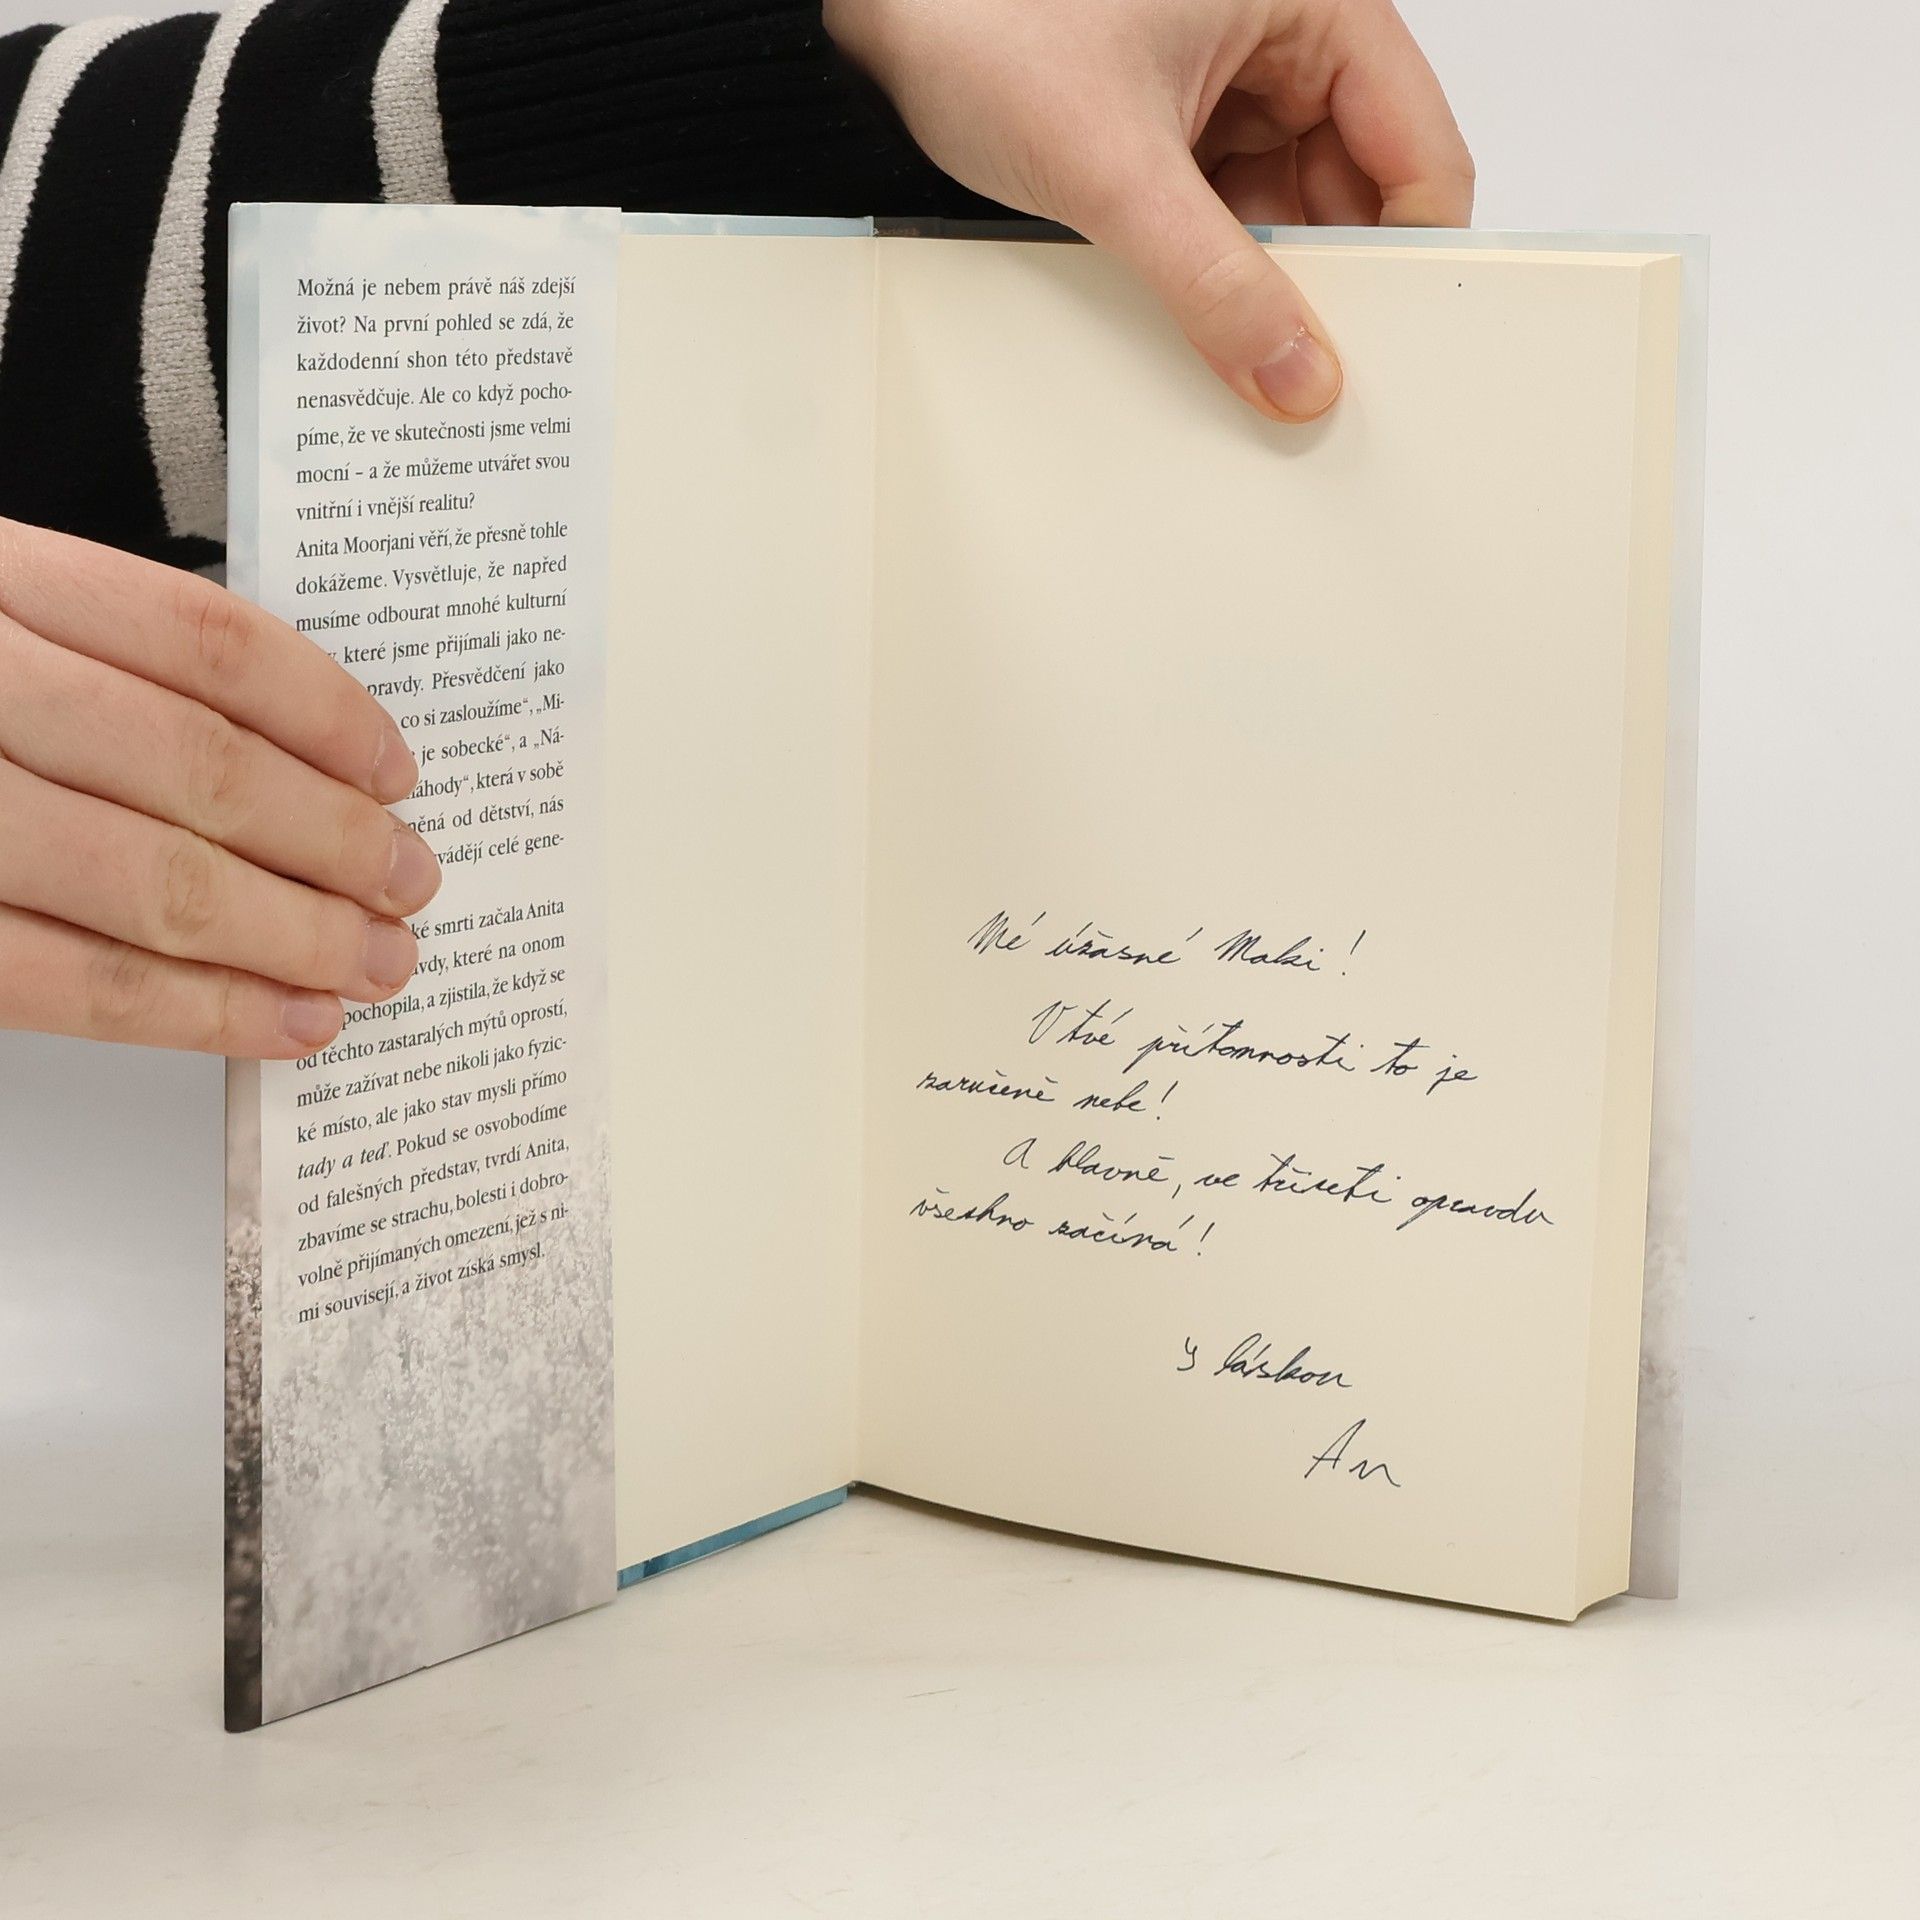 Možná je nebem právě náš zdejší
život? Na první pohled se zdá, že
každodenní shon této představě
nenasvědčuje. Ale co když pocho-
píme, že ve skutečnosti jsme velmi
mocní – a že můžeme utvářet svou
vnitřní i vnější realitu?
Anita Moorjani věří, že přesně tohle
dokážeme. Vysvětluje, že napřed
musíme odbourat mnohé kulturní
které jsme přijímali jako ne-
pravdy. Přesvědčení jako
co si zasloužíme“, „Mi-
je sobecké“, a „Ná-
která v sobě
od dětství, nás
celé gene-
smrti začala Anita
které na onom
pochopila, a zjistila, že když se
od těchto zastaralých mýtů oprostí,
může zažívat nebe nikoli jako fyzic-
ké místo, ale jako stav mysli přímo
tady a teď. Pokud se osvobodíme
od falešných představ, tvrdí Anita,
zbavíme se strachu, bolesti i dobro-
volně přijímaných omezení, jež s ni-
mi souvisejí, a život získá smysl.
Mé úžasné Maki!
V tvé přítomnosti to je
zaručeně nebe!
A hlavně, ve třiceti opravdu
všechno začíná!
S láskou